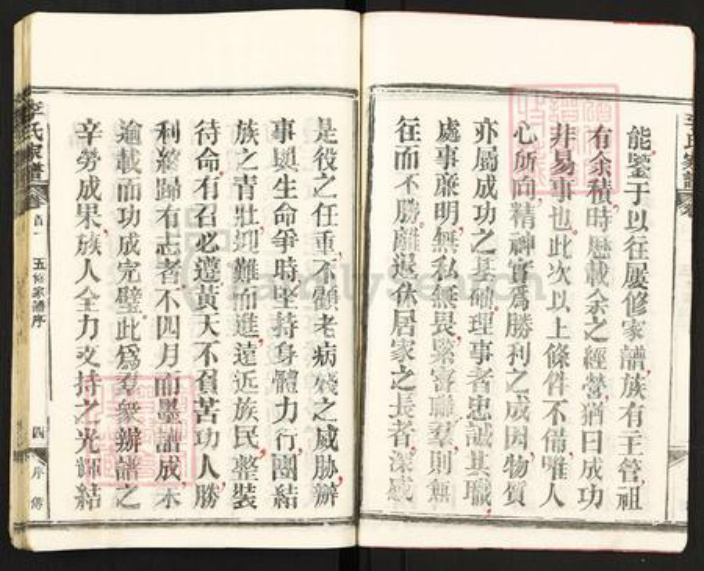 能鑒于以往屡修家譜族有主管祖
有余積時歷載余之經營猶曰成功
非易事也此次以上條件不備唯人
心所向精神實爲勝利之成因物質
亦屬成功之基礎理事者忠誠其職
處事廉明無私無畏緊密聯羣則無
往而不勝離退休居家之長者深感
是役之任重不顧老病殘之威胁辦
事與生命爭時坚持身體力行團結
族之青壯迎難而進遠近族民整裝
待命有召必遵黄天不負苦功人勝
利終歸有志者不四月而墨譜成未
逾載而功成完璧此爲羣衆辦譜之
辛勞成果族人全力支持之光輝結
李氏家譜
卷首一
五修家譜序
四
序傳
FamilySearch